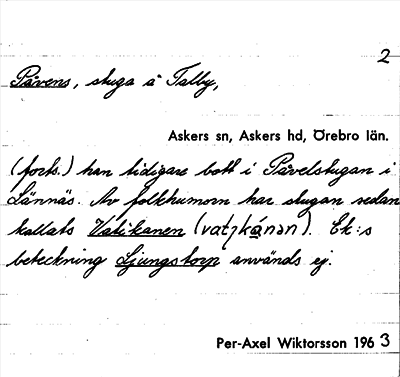 2
Påvens, stuga å Talby,
Askers sn, Askers hd, Örebro län.
(forts.) han tidigare bott i Påvelstugan i
Lännäs. Av folkhumorn har stugan sedan
kallats Vatikanen (vatıkánən). Ek:s
beteckning Ljungstorp används ej.
Per-Axel Wiktorsson 1963